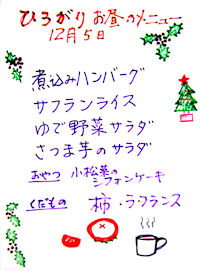 ひろがり お昼のメニュー
12月5日
煮込みハンバーグ
サフランライス
ゆで野菜サラダ
さつま芋のサラダ
おやつ 小松菜の
シフォンケーキ
くだもの 柿・ラ・フランス